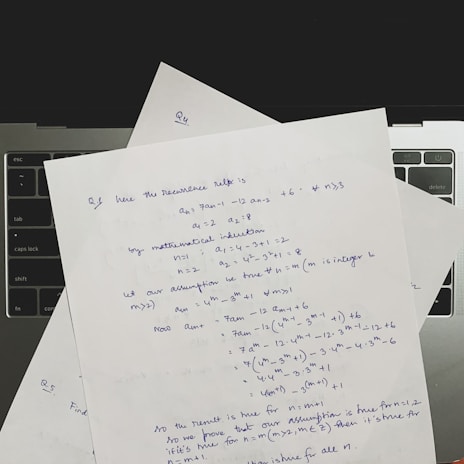 Q4
esc
tab
caps lock
shift
fn
control
delete
Q3 here the recurrence relⁿ is
aₙ = 7aₙ₋₁ - 12 aₙ₋₂ + 6 · ∀ n≥3
a₁ = 2 a₂ = 8
by mathematical induction
n=1 a₁ = 4 - 3 + 1 = 2
n=2 a₂ = 4² - 3² + 1 = 8
let our assumption be true ∀ n = m (m is integer &
m>2) aₘ = 4ᵐ - 3ᵐ + 1 ∀ m≥1
now aₘ₊₁ = 7aₘ - 12 aₘ₋₁ + 6
= 7aₘ - 12 (4ᵐ⁻¹ - 3ᵐ⁻¹ + 1) + 6
= 7 aᵐ - 12·4ᵐ⁻¹ - 12·3ᵐ⁻¹ - 12 + 6
= 7(4ᵐ - 3ᵐ + 1) - 3·4ᵐ - 4·3ᵐ - 6
= 4·4ᵐ - 3·3ᵐ + 1
= 4(ᵐ⁺¹) - 3(ᵐ⁺¹) + 1
so the result is true for n = m+1
so we prove that our assumption is true for n=1,2
if it's true for n=m (m>2, m∈Z) then it's true for
n = m+1
is true for all n.
Q5
Find